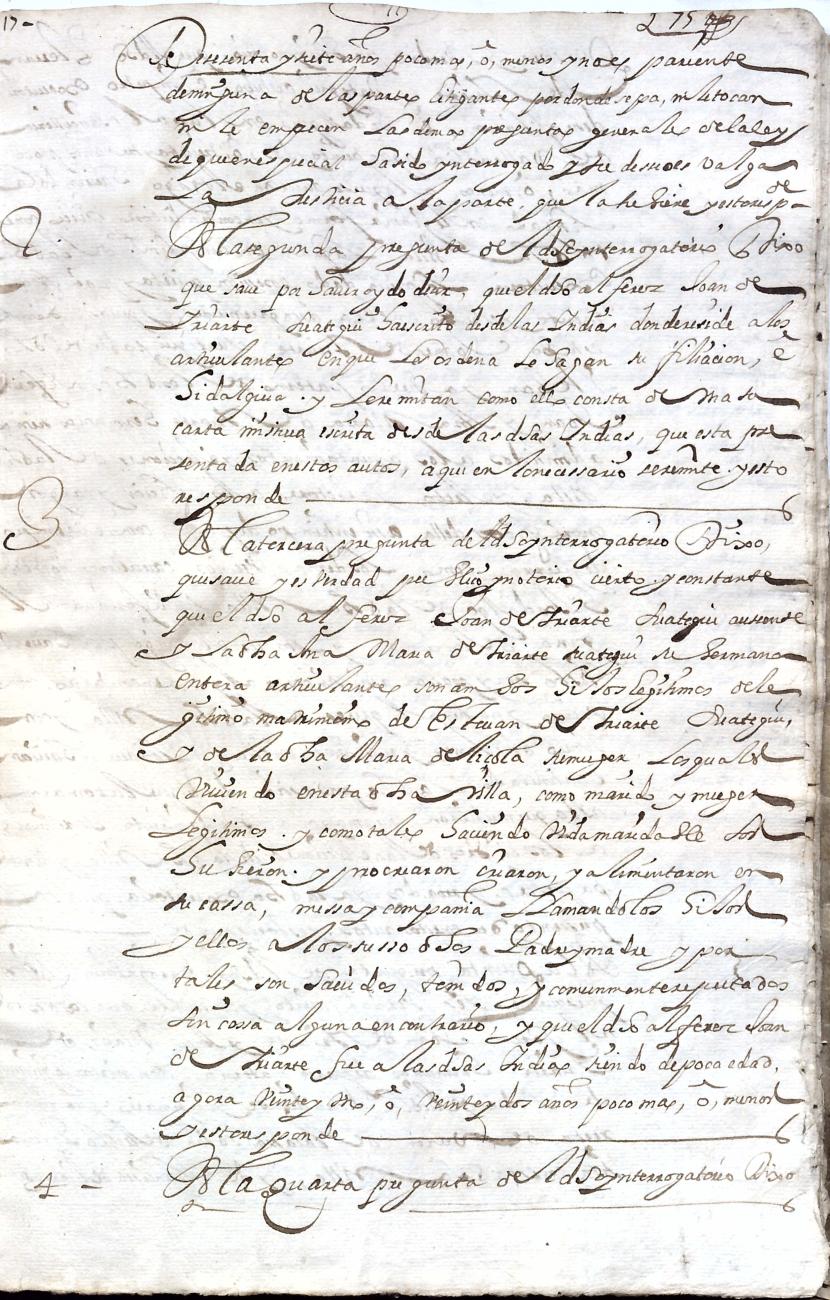 17-
de sesenta y siete años poco mas, ô, menos y no es pariente
de ninguna de las partes litigantes por donde sepa, ni le tocan
ni le empecen Las demas preguntas generales de la ley
de que en especial ha sido ynterrogado y su deseo es valga
La Justicia a la parte, que la tubiere y esto resp.de
2
A la segunda pregunta del dho ynterrogatorio Dixo
que save por haver oydo dezir, que el dho alferez Joan de
Yriarte Suategui ha escrito desde las Indias donde reside a los
articulantes en que Les ordena Le hagan su filiacion, ê
hidalguia. y Le remitan como ello consta de una su
carta missiva escrita desde las dhas Indias, que esta pre
sentada en estos autos, a que en lo necessario se remite. y esto
responde
3
A la tercera pregunta del dho ynterrogatorio Dixo,
que save y es verdad publico y notorio cierto. y constante
que el dho alferez Joan de Yriarte Suategui ausente
y La dha Ana Maria de Yriarte suategui su hermana
entera articulantes son ambos hijos legitimos de le
gitimo matrimonio de Estevan de Yriarte Suategui,
y de la dha Maria de Licola su muger Los quales
Viviendo en esta dha Villa, como marido y muger
Legitimos. y como tales haciendo Vida maridable los
hubieron. y procrearon criaron, y alimentaron en
su cassa, messa y compania Llamandolos hijos
y ellos a los susso dhos Padre y madre y por
tales son havidos, tenidos, y comunmente reputados
sin cossa alguna en contrario, y que el dho alferez Joan
de Yriarte fue a las dhas Indias siendo de poca edad,
agora Veinte y Un, ô, Veinte y dos años poco mas, ô, menos
y esto responde
4 -
A la quarta pregunta del dho ynterrogatorio Dixo